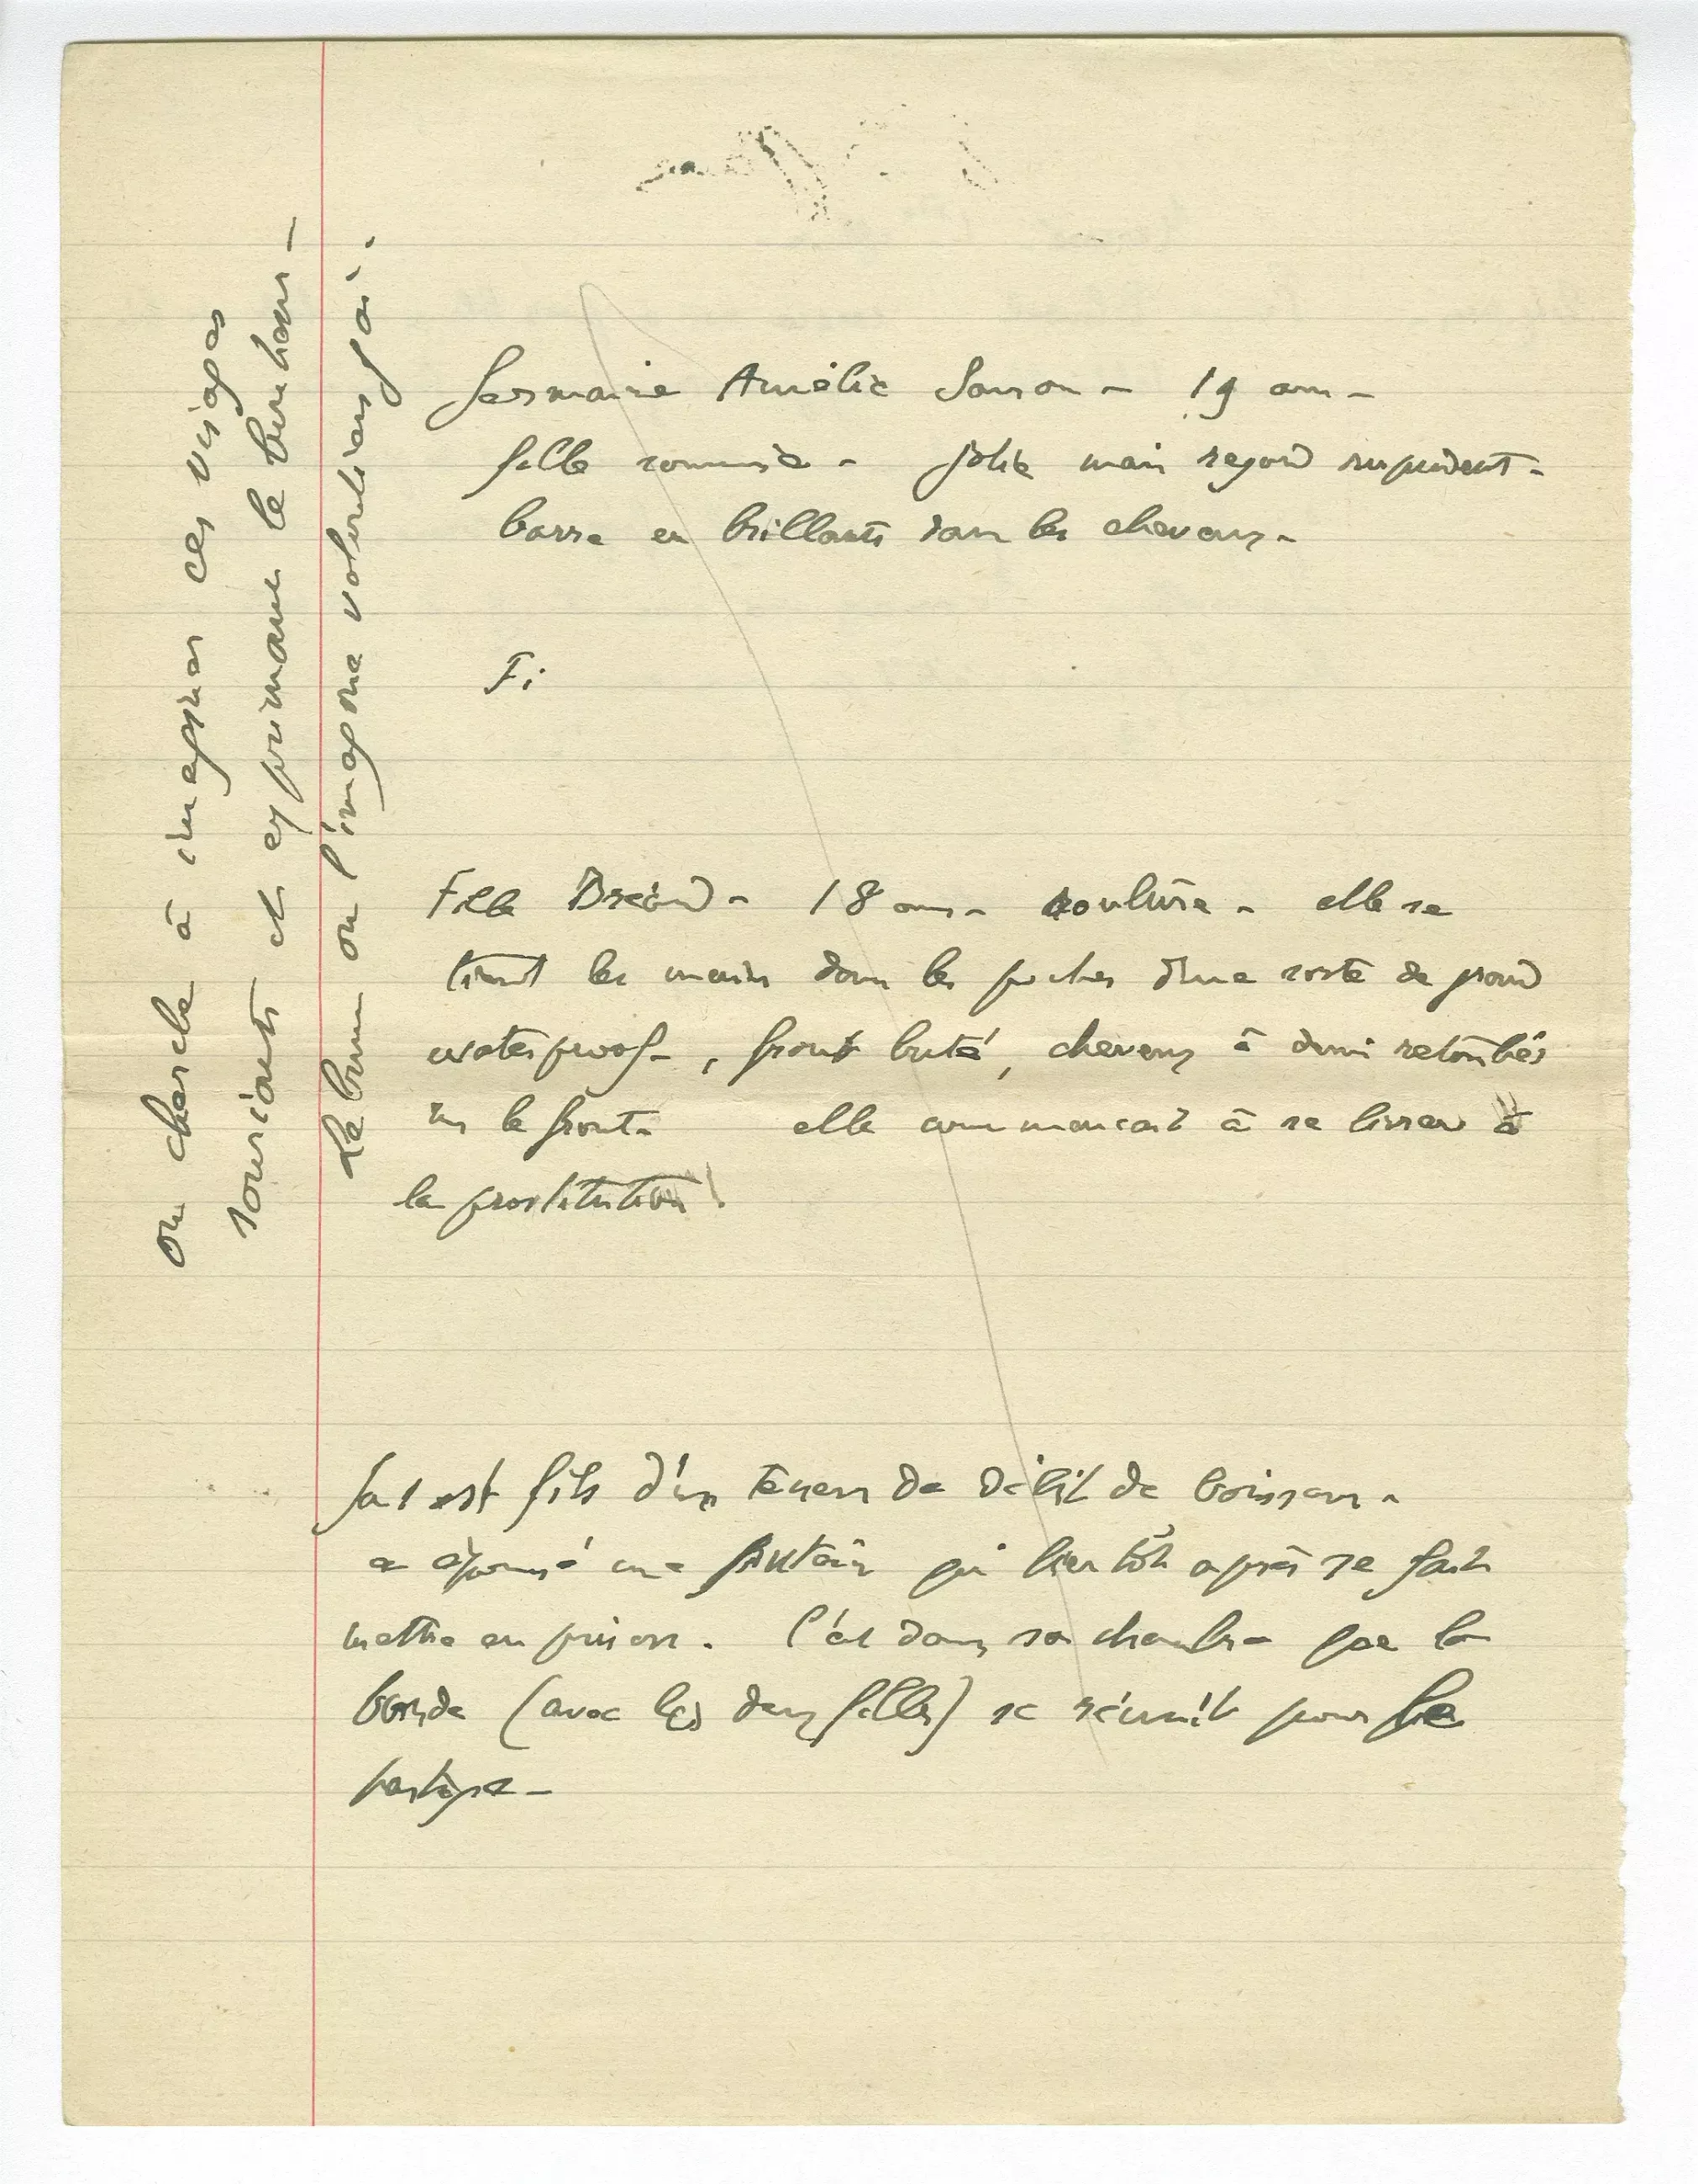 on cherche à imaginer ces visages
souriants et exprimant le bonheur –
Lebrun on l'imagine volontiers gai.
Germaine Amélie Sanson – 19 ans –
fille soumise – jolie mais regard impudent –
barre en brillants dans les cheveux –
Fi
Fille Bréand – 18 ans – elle se
tient les mains dans les poches d'une sorte de grand
waterproof – , front buté, cheveux à demi retombés
sur le front – elle commençait à se livrer à
la prostitution !
est fils d'un teneur de débit de boissons –
a épousé une putain qui bientôt après se fait
mettre en prison. C'est dans sa chambre que la
bande (avec les deux filles) se réunit pour le
partage –